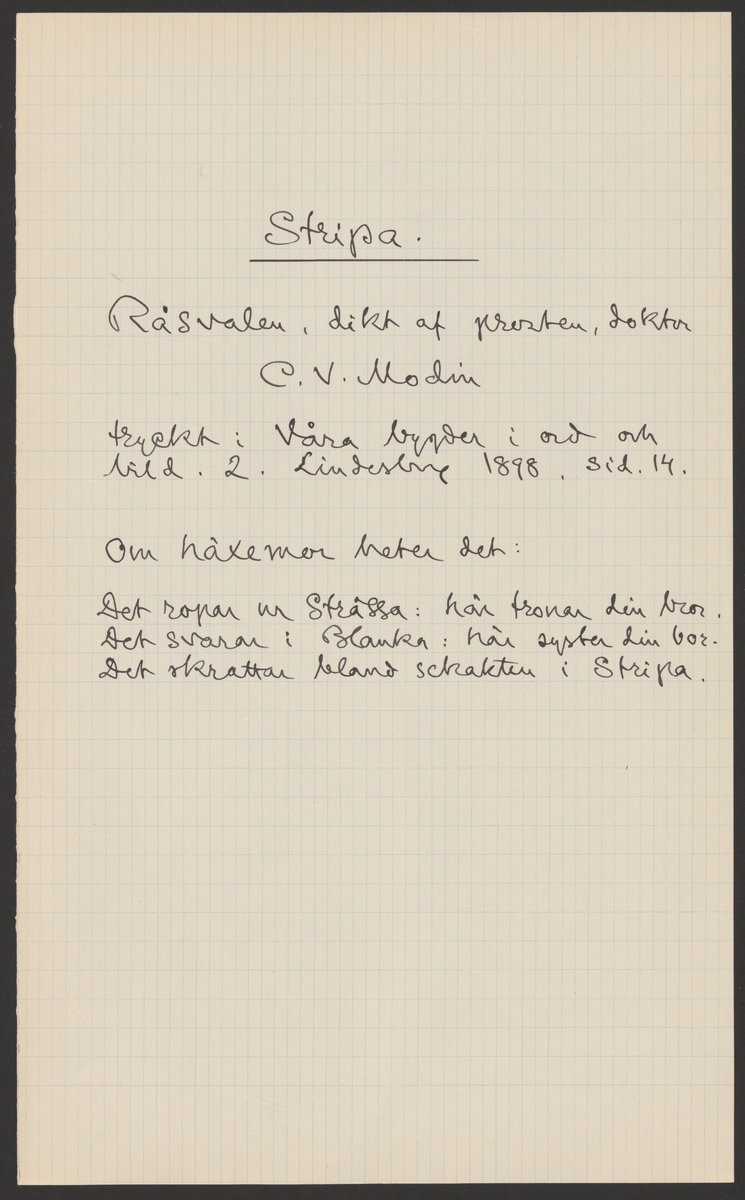 Stripa.
Råsvalen, dikt af prosten, doktor
C. V. Modin
tryckt i Våra bygder i ord och
bild. 2. Lindesberg 1898. sid. 14.
Om häxemor heter det:
Det ropar ur Stråssa: här tronar din bror.
Det svarar i Blanka: här syster din bor.
Det skrattar bland schakten i Stripa.